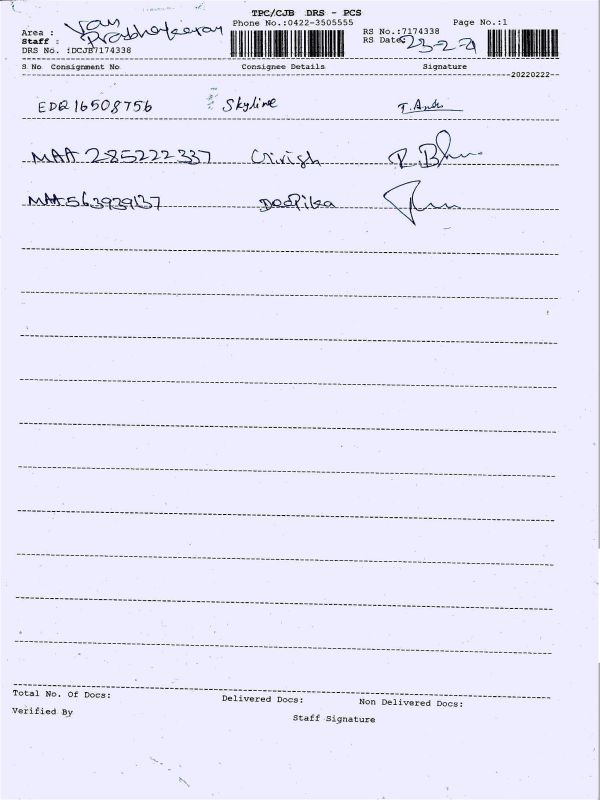 TPC/CJB DRS - PCS
Phone No.:0422-3505555
Page No.:1
Area : Van
Staff : Prabhakaran
DRS No. :DCJB7174338
RS No.:7174338
RS Date: 23-2-21
S No Consignment No Consignee Details Signature
--20220222--
EDR16508756 Skyline T. Andr
MAA 285222337 Girish R. Bh
MAA563939137 Deepika
Total No. Of Docs: Delivered Docs: Non Delivered Docs:
Verified By Staff Signature